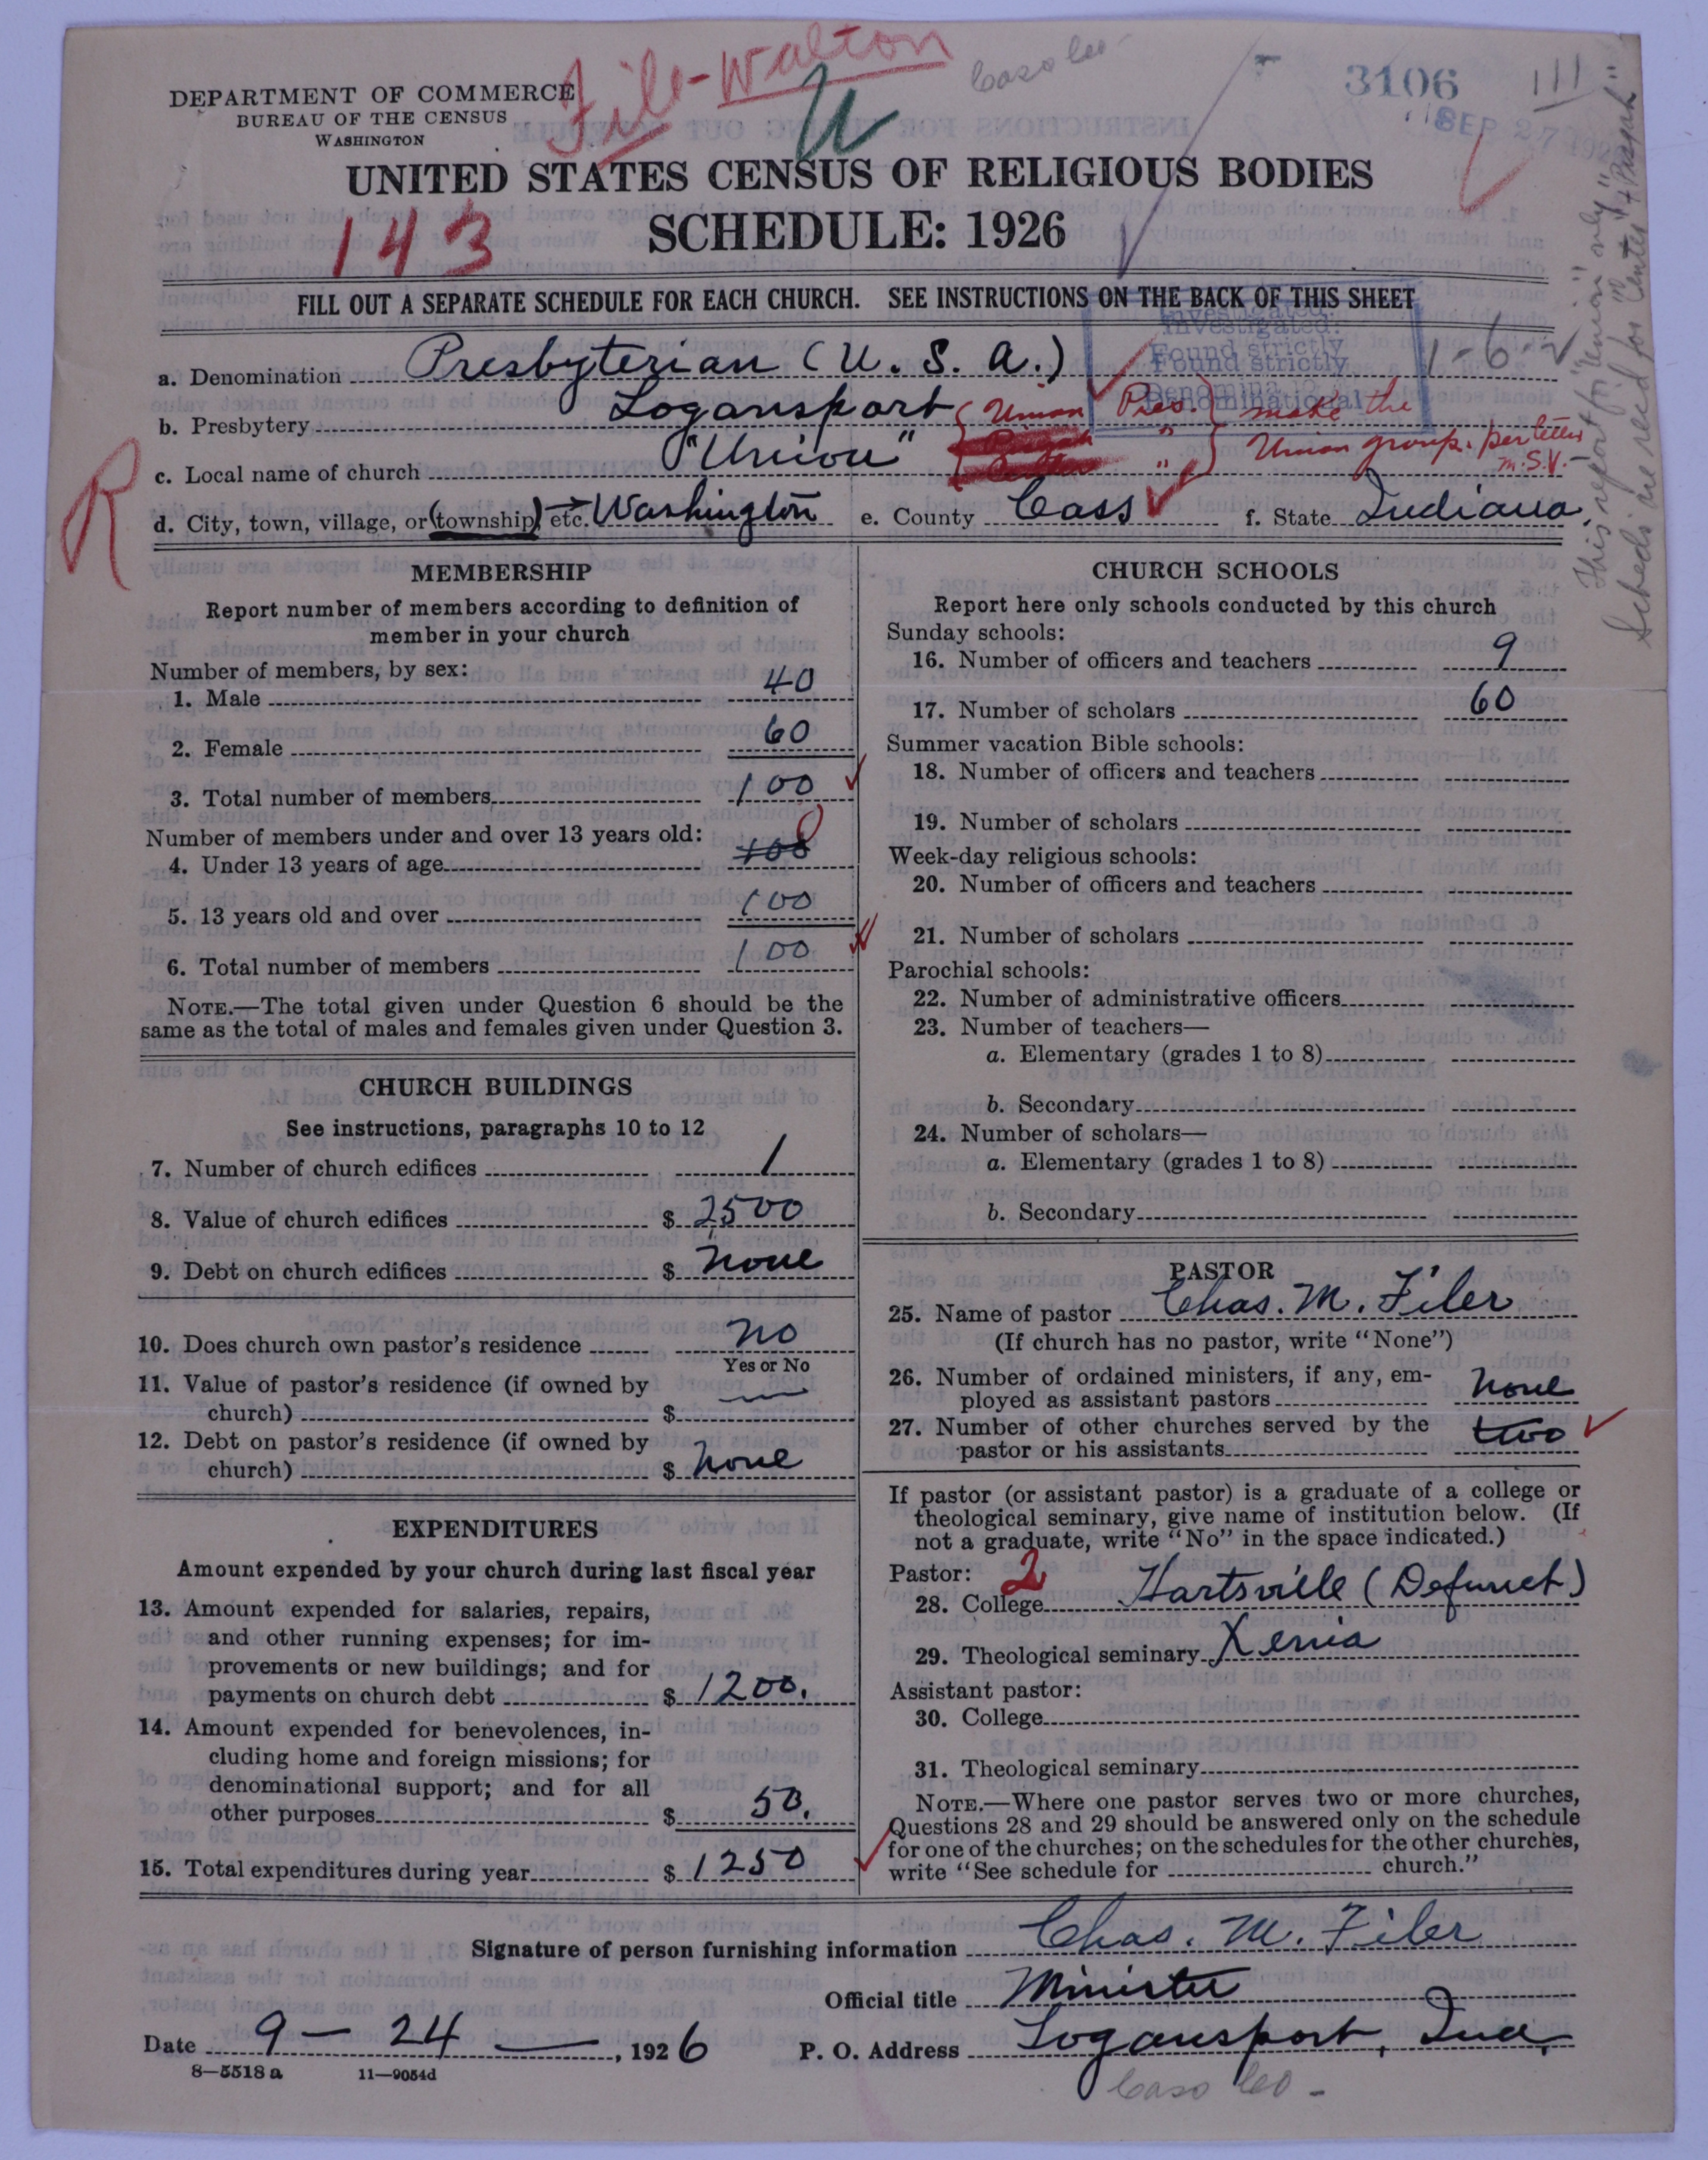 File-Walton
U
Caso Co-
3106
111
SEP 27 192
DEPARTMENT OF COMMERCE
BUREAU OF THE CENSUS
WASHINGTON
UNITED STATES CENSUS OF RELIGIOUS BODIES
143
SCHEDULE: 1926
FILL OUT A SEPARATE SCHEDULE FOR EACH CHURCH. SEE INSTRUCTIONS ON THE BACK OF THIS SHEET
Investigated.
Found strictly
Denominational
1-6-
a. Denomination Presbyterian (U. S. A.)
b. Presbytery Logansport
c. Local name of church "Union"
Union Pres. make the
" Union group. per letter
" M.S.V.-
d. City, town, village, or (township) etc. Washington e. County Cass f. State Indiana
This report for "Union" only"
Scheds are reed for "Center" + Pisgah"
MEMBERSHIP
Report number of members according to definition of
member in your church
Number of members, by sex:
1. Male 40
2. Female 60
3. Total number of members 100
Number of members under and over 13 years old:
4. Under 13 years of age 100 0
5. 13 years old and over 100
6. Total number of members 100
NOTE.—The total given under Question 6 should be the
same as the total of males and females given under Question 3.
CHURCH BUILDINGS
See instructions, paragraphs 10 to 12
7. Number of church edifices 1
8. Value of church edifices $ 2500
9. Debt on church edifices $ none
10. Does church own pastor's residence no
Yes or No
11. Value of pastor's residence (if owned by
church) $ —
12. Debt on pastor's residence (if owned by
church) $ none
EXPENDITURES
Amount expended by your church during last fiscal year
13. Amount expended for salaries, repairs,
and other running expenses; for im-
provements or new buildings; and for
payments on church debt $ 1200.
14. Amount expended for benevolences, in-
cluding home and foreign missions; for
denominational support; and for all
other purposes $ 50.
15. Total expenditures during year $ 1250
CHURCH SCHOOLS
Report here only schools conducted by this church
Sunday schools:
16. Number of officers and teachers 9
17. Number of scholars 60
Summer vacation Bible schools:
18. Number of officers and teachers
19. Number of scholars
Week-day religious schools:
20. Number of officers and teachers
21. Number of scholars
Parochial schools:
22. Number of administrative officers
23. Number of teachers—
a. Elementary (grades 1 to 8)
b. Secondary
24. Number of scholars—
a. Elementary (grades 1 to 8)
b. Secondary
PASTOR
25. Name of pastor Chas. M. Filer
(If church has no pastor, write "None")
26. Number of ordained ministers, if any, em-
ployed as assistant pastors none
27. Number of other churches served by the
pastor or his assistants two
If pastor (or assistant pastor) is a graduate of a college or
theological seminary, give name of institution below. (If
not a graduate, write "No" in the space indicated.)
Pastor: 2
28. College Hartsville (Defunct)
29. Theological seminary Xenia
Assistant pastor:
30. College
31. Theological seminary
NOTE.—Where one pastor serves two or more churches,
Questions 28 and 29 should be answered only on the schedule
for one of the churches; on the schedules for the other churches,
write "See schedule for church."
Signature of person furnishing information Chas. M. Filer
Official title Minister
Date 9 - 24 -, 1926 P. O. Address Logansport, Ind.
8—5518 a 11—9054d
Caso Co-
R